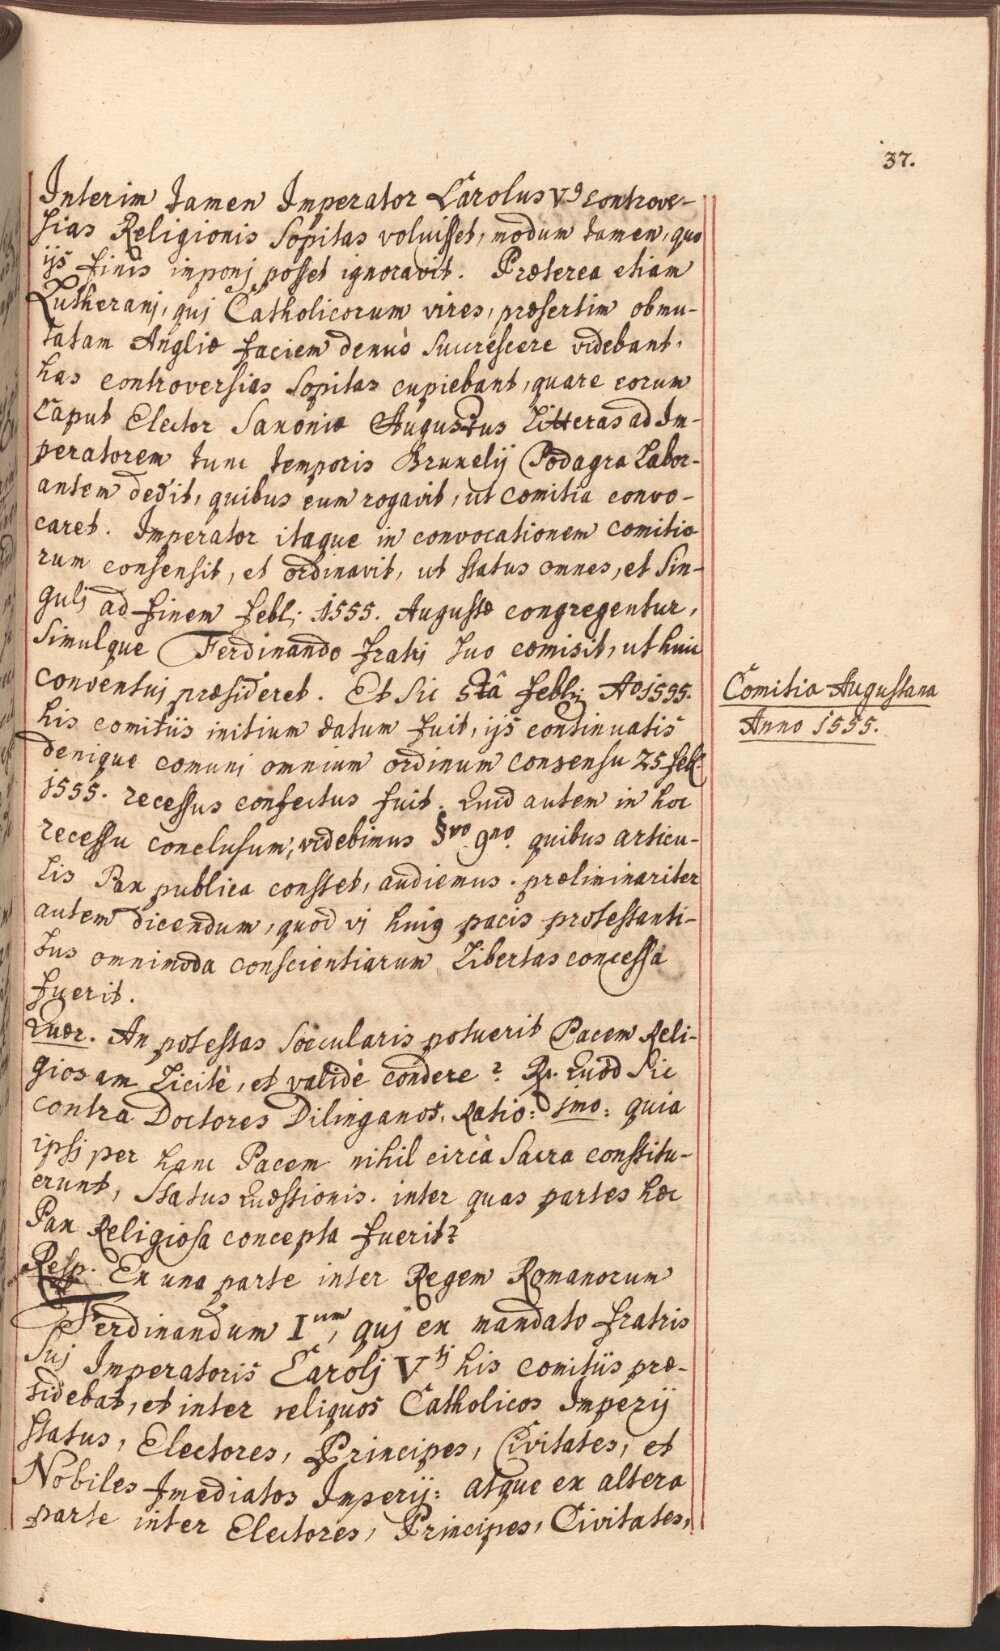 37.
Interim tamen Imperator Carolus V9 controver-
sias Religionis sopitas voluisset, modum tamen, quo
ijs finis imponj posset ignoravit. Præterea etiam
Lutheranj, quj Catholicorum vires, præsertim obmu-
tatam Angliæ faciem denuò succrescere videbant,
has controversias sopitas cupiebant, quare eorum
Caput Elector Saxoniæ Augustus Litteras ad Im-
peratorem tunc temporis Bruxelij Podagra Labor-
antem dedit, quibus eum rogavit, ut comitia convo-
caret. Imperator itaque in convocationem comitio
rum consensit, et ordinavit, ut status omnes, et sin-
gulj ad finem febl; 1555. Augustæ congregentur,
simulque Ferdinando fratrj suo comisit, ut huic
conventuj præsideret. Et sic 5tâ febl; Ao 1555.
his comitiis initium datum fuit, ijs continuatis
denique comunj omnium ordinum consensu 25 feb
1555. recessus confectus fuit. Quid autem in hoc
recessu conclusum, videbimus §vo 9no. quibus articu-
lis Pax publica constet, audiemus. præliminariter
autem dicendum, quod vj huig pacis protestanti-
bus omnimoda conscientiarum Libertas concessa
fuerit.
Quær. An potestas Sæcularis potuerit Pacem Reli-
giosam Licitè, et validè condere? Rx. Quod sic
contra Doctores Dilinganos. Ratio: 1mo: quia
ipsi per hanc Pacem nihil circà Sacra constitu-
erunt, Status Quæstionis. inter quas partes hæc
Pax Religiosa concepta fuerit?
Resp. Ex una parte inter Regem Romanorum
Ferdinandum Ium, quj ex mandato fratris
Suj Imperatoris Carolj Vtj his comitiis præ-
sidebat, et inter reliquos Catholicos Imperij
status, Electores, Principes, Civitates, et
Nobiles Imediatos Imperij: atque ex altera
parte inter Electores, Principes, Civitates,
Comitia Augustana
Anno 1555.